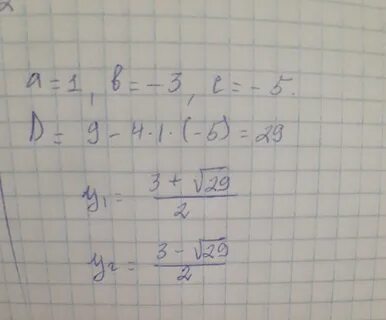 a = 1, b = -3, c = -5.
D = 9 - 4·1·(-5) = 29
y₁ = (3 + √29)/2
y₂ = (3 - √29)/2